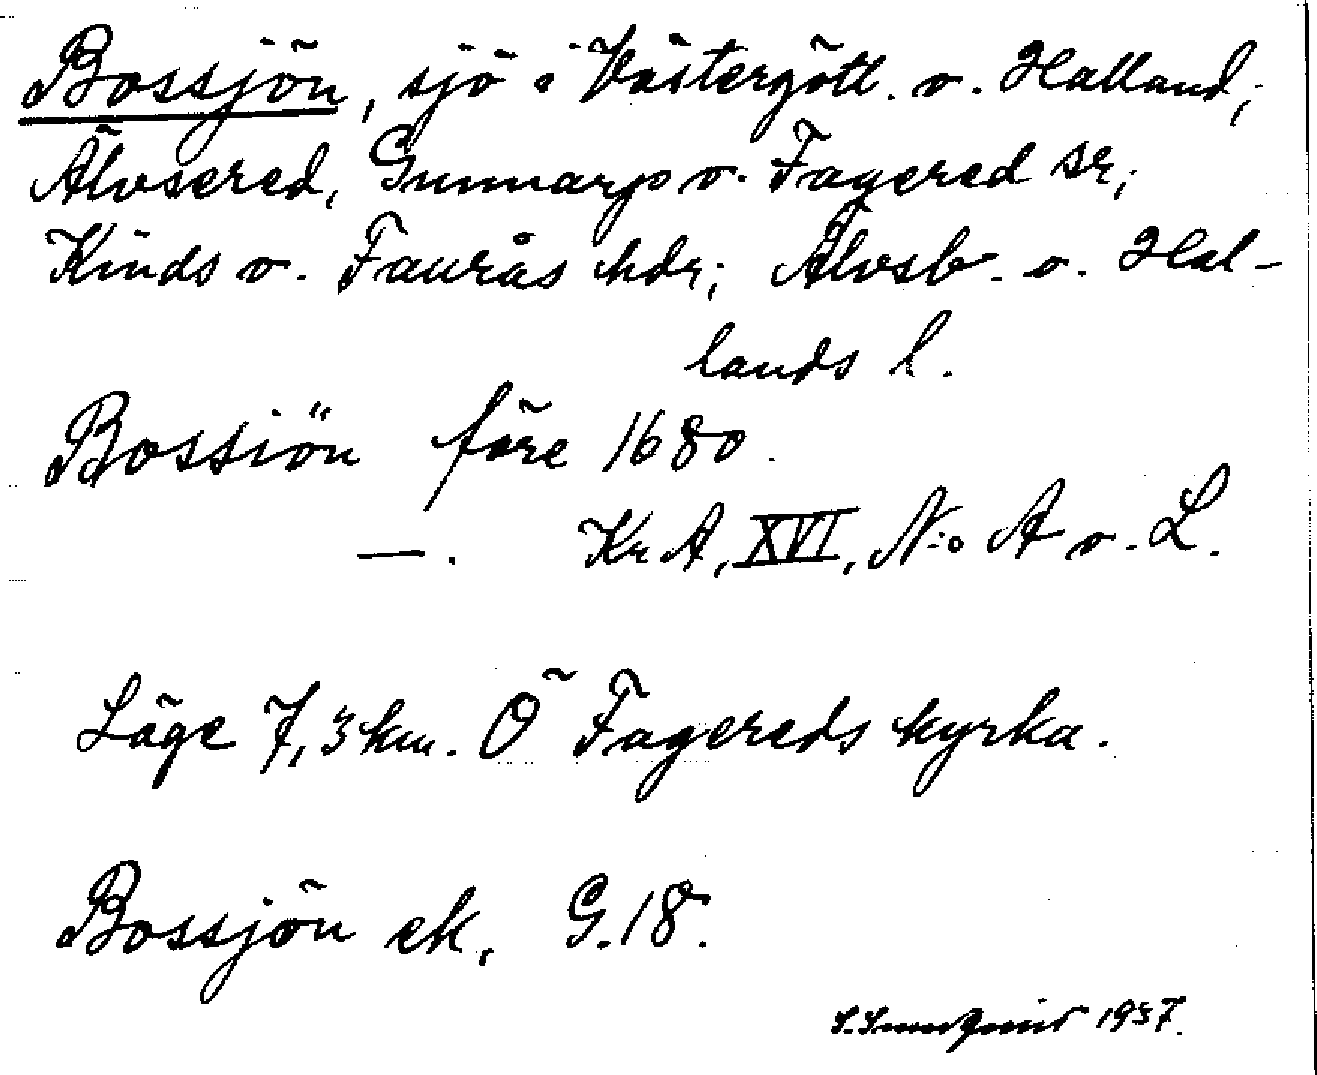 Bossjön, sjö i Västergötl. o. Halland;
Älvsered, Gunnarp o. Fagered sr;
Kinds o. Faurås hdr; Älvsb. o. Hal-
lands l.
Bossiön före 1680.
—. KrA, XVI, N:o A o. L.
Läge 7,3 km. Ö Fagereds kyrka.
Bossjön ek. G.18.
1937.